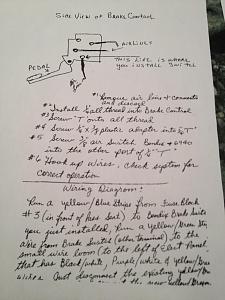 Side View of Brake Control
AIR LINES
THIS LINE IS WHERE
YOU INSTALL SWITCH
PEDAL
#1 Remove air lines & connects
and discard
#2 Install 1/4" all thread into Brake Control
#3 Screw 'T' onto all thread
#4 Screw 1/4 x 1/8 plastic adapter into 'T'
#5 Screw air Switch Bendix #6940
into the other port of 'T'
#6 Hook up Wires. Check system for
correct operation
Wiring Diagram:
Run a Yellow/Blue Stripe from Fuse Block
#3 (in front of hex Switch) to Bendix Brake Switch
you just installed, Run a Yellow/Green Stripe
wire from Brake Switch (other terminal) to the
small wire loom (to the left of Dart Panel
that has Black/white, Purple/white & Yellow/Green
wires. Just disconnect the existing yellow/
the new Yellow/Green